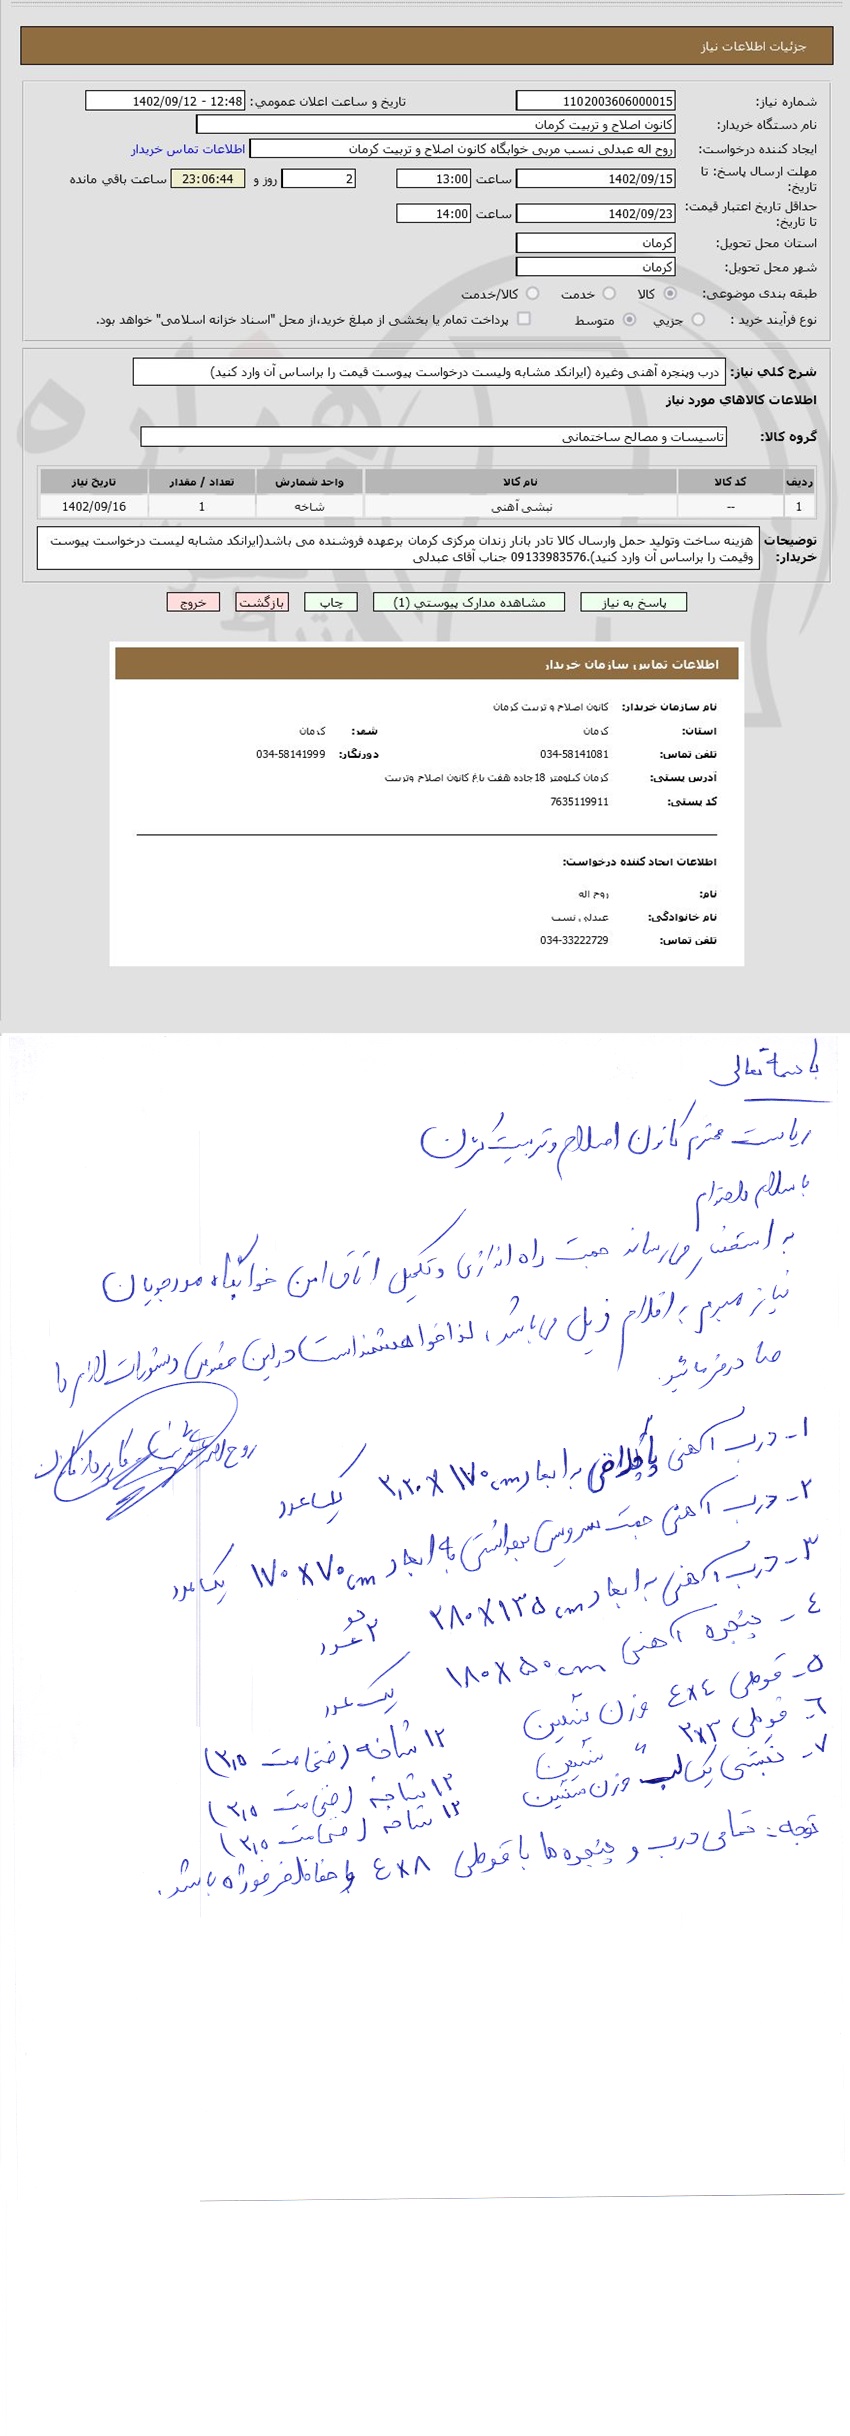 جزئیات اطلاعات نیاز
شماره نیاز: 1102003606000015 تاریخ و ساعت اعلان عمومي: 1402/09/12 - 12:48
نام دستگاه خریدار: کانون اصلاح و تربیت کرمان
ایجاد کننده درخواست: روح اله عبدلی نسب مربی خوابگاه کانون اصلاح و تربیت کرمان اطلاعات تماس خریدار
مهلت ارسال پاسخ: تا تاریخ: 1402/09/15 ساعت 13:00 2 روز و 23:06:44 ساعت باقي مانده
حداقل تاریخ اعتبار قیمت: تا تاریخ: 1402/09/23 ساعت 14:00
استان محل تحویل: کرمان
شهر محل تحویل: کرمان
طبقه بندی موضوعی: کالا خدمت کالا/خدمت
نوع فرآیند خرید : جزیي متوسط پرداخت تمام یا بخشی از مبلغ خرید،از محل "اسناد خزانه اسلامی" خواهد بود.
شرح کلي نیاز: درب وپنجره آهنی وغیره (ایرانکد مشابه ولیست درخواست پیوست قیمت را براساس آن وارد کنید)
اطلاعات کالاهاي مورد نیاز
گروه کالا: تاسیسات و مصالح ساختمانی
ردیف کد کالا نام کالا واحد شمارش تعداد / مقدار تاریخ نیاز
1 -- نبشی آهنی شاخه 1 1402/09/16
توضیحات خریدار: هزینه ساخت وتولید حمل وارسال کالا تادر بانار زندان مرکزی کرمان برعهده فروشنده می باشد(ایرانکد مشابه لیست درخواست پیوست
وقیمت را براساس آن وارد کنید).09133983576 جناب آقای عبدلی
پاسخ به نیاز مشاهده مدارک پیوستي (1) چاپ بازگشت خروج
اطلاعات تماس سازمان خریدار
نام سازمان خریدار: کانون اصلاح و تربیت کرمان
استان: کرمان شهر: کرمان
تلفن تماس: 034-58141081 دورنگار: 034-58141999
آدرس پستی: کرمان کیلومتر 18جاده هفت باغ کانون اصلاح وتربیت
کد پستی: 7635119911
اطلاعات ایجاد کننده درخواست:
نام: روح اله
نام خانوادگی: عبدلی نسب
تلفن تماس: 034-33222729
باسمه تعالی
ریاست محترم کانون اصلاح و تربیت کرمان
با سلام و احترام
به استحضار می رساند جهت راه اندازی و تکمیل اتاق امن خوابگاه مددجویان
نیاز مبرم به اقلام ذیل می باشد، لذا خواهشمند است در این خصوص دستورات لازم را
صادر فرمائید.
۱- درب آهنی به ابعاد ۲,۲۰ X ۱۷۰ cm یک عدد
۲- درب آهنی جهت سرویس بهداشتی به ابعاد ۱۷۰ X ۷۰ cm یک عدد
۳- درب آهنی به ابعاد ۲۸۰ X ۱۳۵ cm ۲ عدد
دو
٤- پنجره آهنی ۱۸۰ X ۵۰ cm یک عدد
۵- قوطی ٤X٤ وزن سنگین ۱۲ شاخه (ضخامت ۲,۵)
۶- قوطی ۳X۳ " سنگین ۱۲ شاخه (ضخامت ۲,۵)
۷- نبشی یک لب وزن سنگین ۱۲ شاخه (ضخامت ۲,۵)
توجه: تمامی درب و پنجره ها با قوطی ٤X۸ و حفاظ فرفورژه باشد.